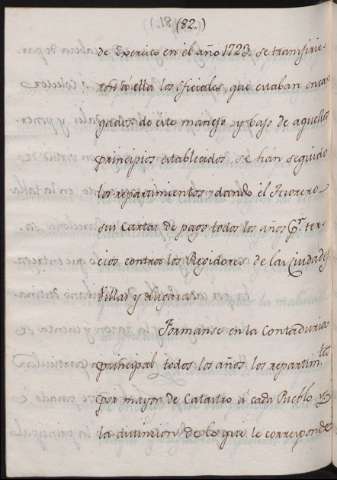 (82.)
de Exercito en el año 1723. se transfirie-
ron à ella los oficiales, que estaban encar
gados de este manejo, y bajo de aquellos
principios establecidos, se han seguido
los repartimientos, dando el Thesorero
sus Cartas de pago todos los años pr. ter-
cios contra los Regidores de las Ciudades
Villas y Lugares.
Formanse en la Contaduria
principal todos los años los repartim.tos
por mayor de Catastro à cada Pueblo, y
la division de lo que le corresponde